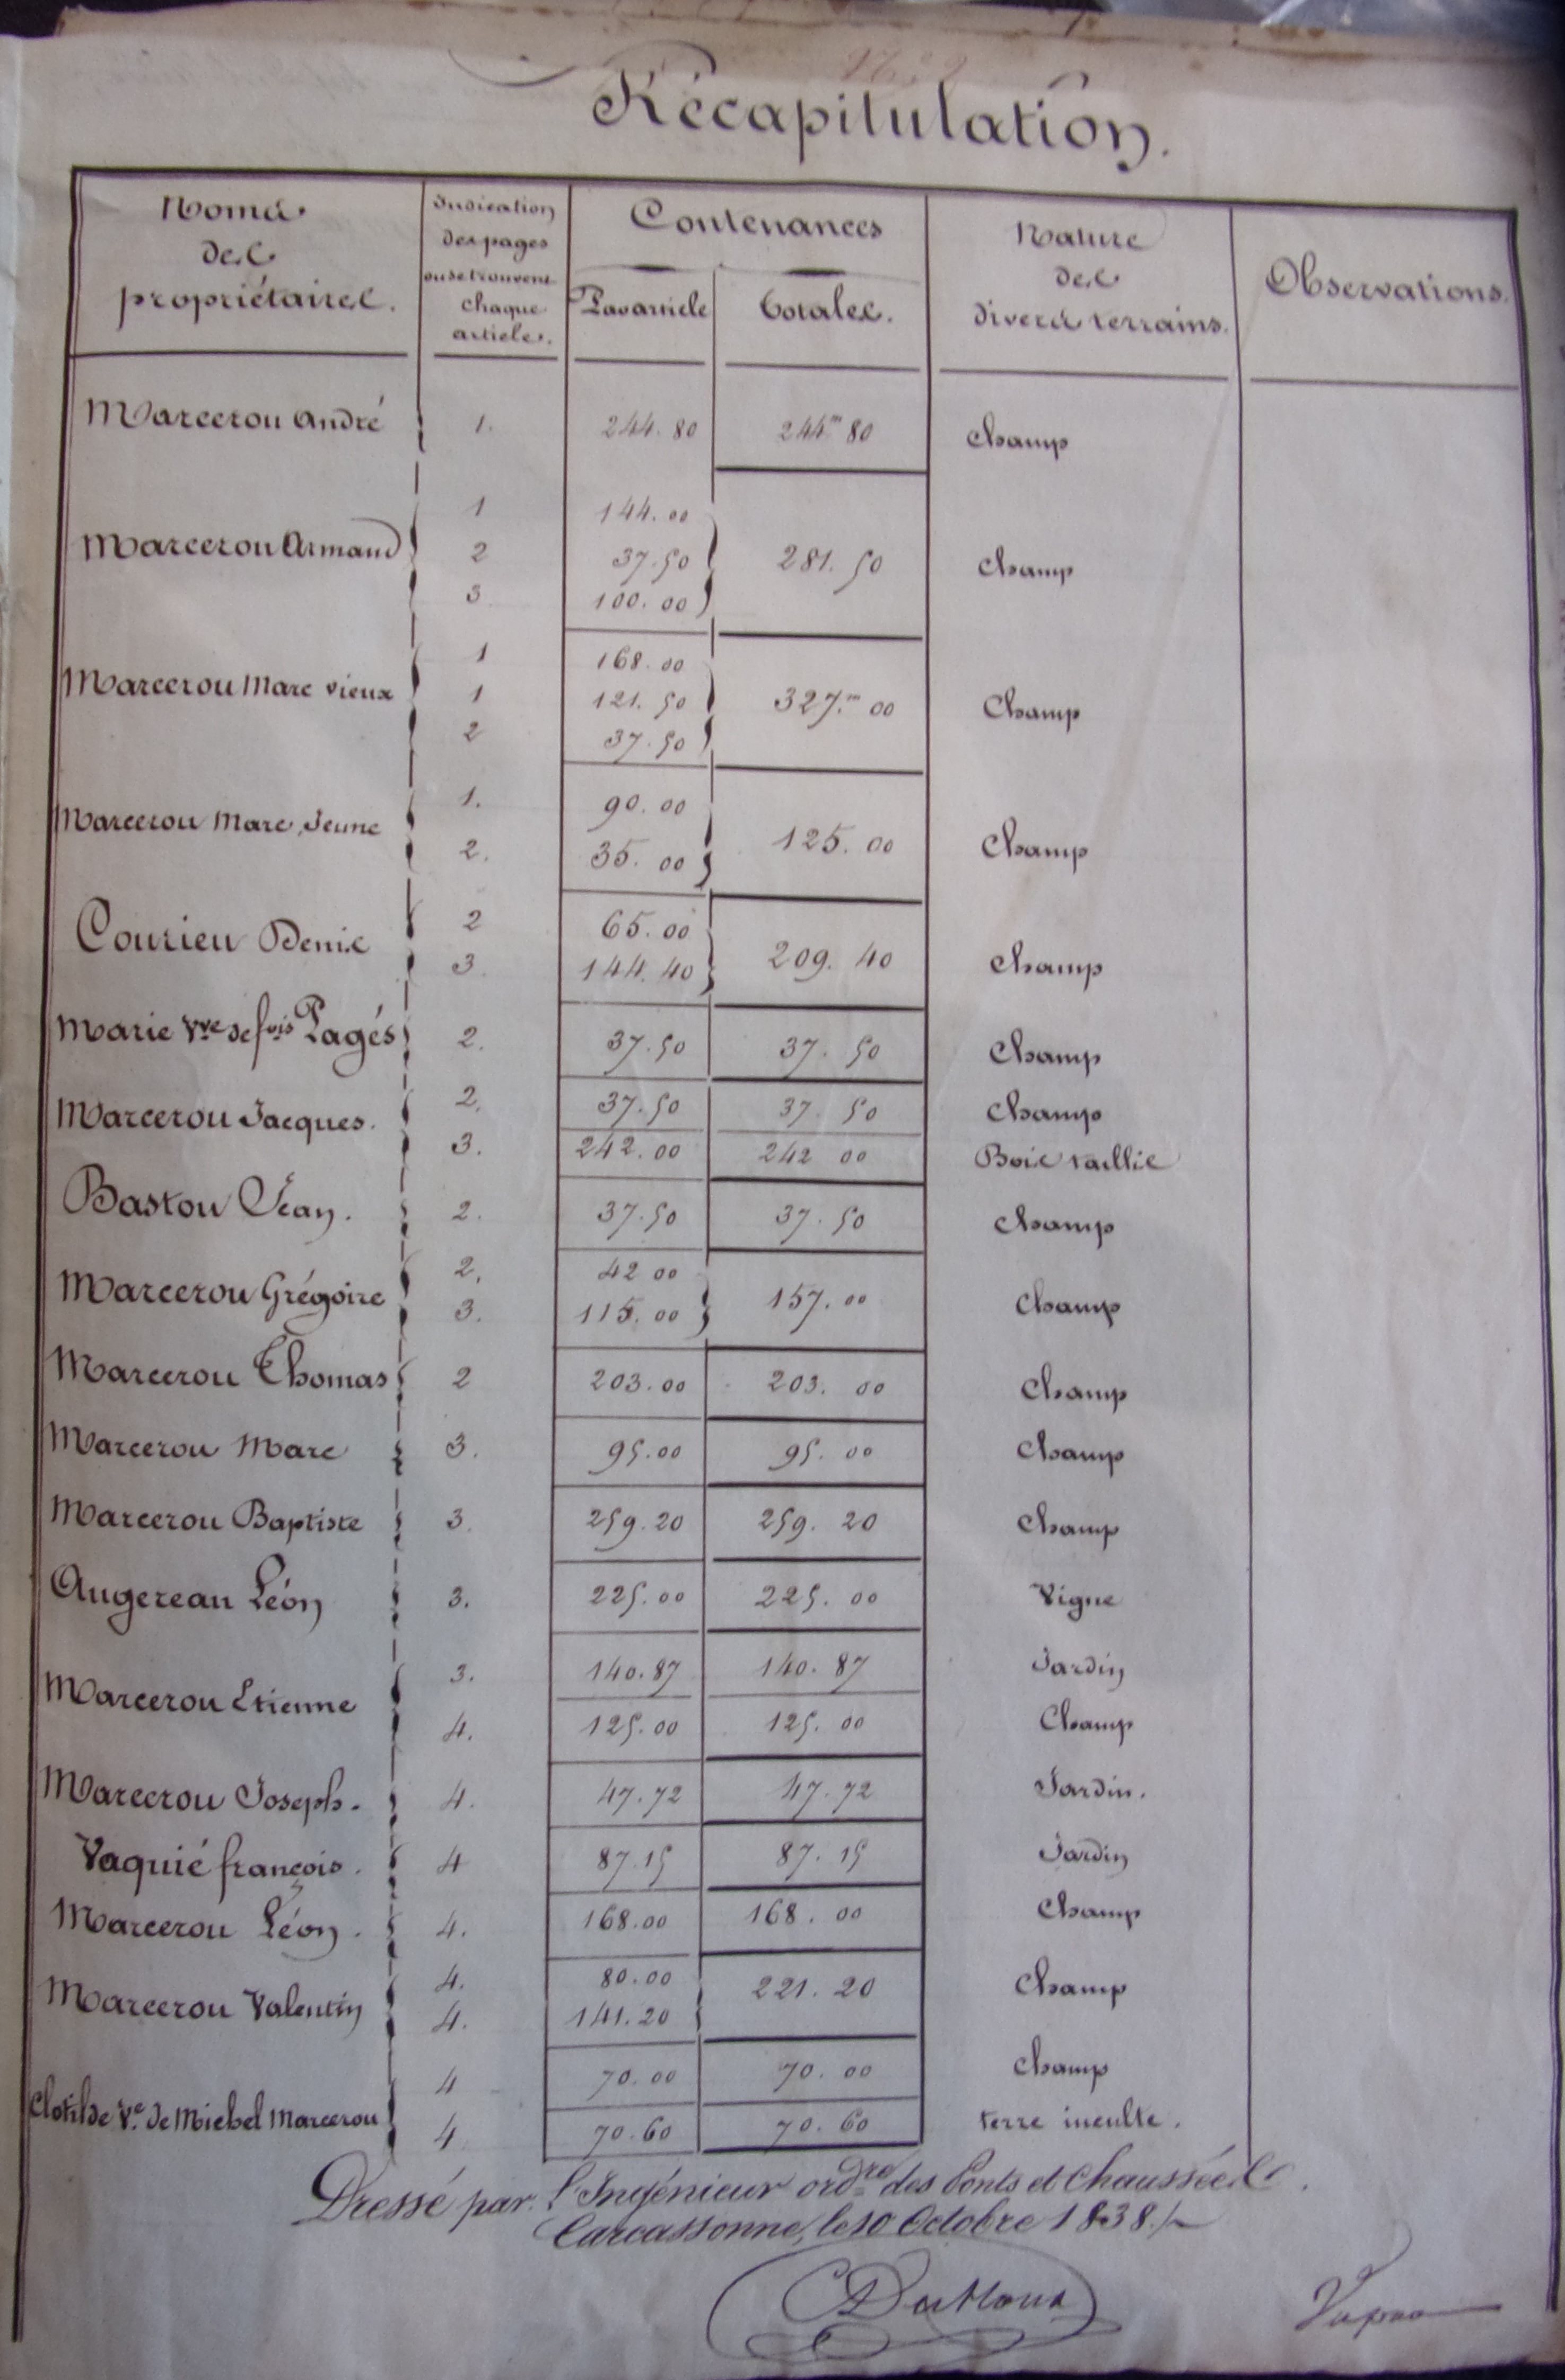 Récapitulation.
Noms des propriétaires.
Indication des pages ou se trouvent chaque article.
Contenances
Par article
Totales.
Nature des divers terrains.
Observations.
Marcerou André 1. 244.80 244m 80 Champ
Marcerou Armand 1 144.00
2 37.50 281.50 Champ
3. 100.00
Marcerou Marc vieux 1 168.00
1 121.50 327.m 00 Champ
2 37.50
Marcerou Marc Jeune 1. 90.00
2. 35.00 125.00 Champ
Courieu Denis 2 65.00
3. 144.40 209.40 Champ
Marie Vve de fois Pagés 2. 37.50 37.50 Champ
Marcerou Jacques. 2. 37.50 37.50 Champ
3. 242.00 242 00 Bois taillis
Bastou Jean. 2. 37.50 37.50 Champ
Marcerou Grégoire 2. 42 00
3. 115.00 157.00 Champ
Marcerou Thomas 2 203.00 203.00 Champ
Marcerou Marc 3. 95.00 95.00 Champ
Marcerou Baptiste 3. 259.20 259.20 Champ
Augereau Léon 3. 225.00 225.00 Vigne
Marcerou Etienne 3. 140.87 140.87 Jardin
4. 125.00 125.00 Champ
Marcerou Joseph. 4. 47.72 47.72 Jardin.
Vaquié françois. 4 87.15 87.15 Jardin
Marcerou Léon. 4. 168.00 168.00 Champ
Marcerou Valentin 4. 80.00 221.20 Champ
4. 141.20
Clotilde Ve de Michel Marcerou 4 70.00 70.00 Champ
4 70.60 70.60 terre inculte.
Dressé par l'Ingénieur ordre des Ponts et Chaussées.
Carcassonne, le 10 Octobre 1838./.